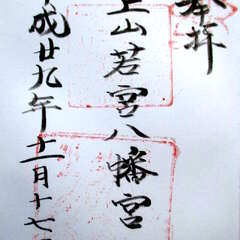 奉拝
上山若宮八幡宮
平成廿九年十一月十七日